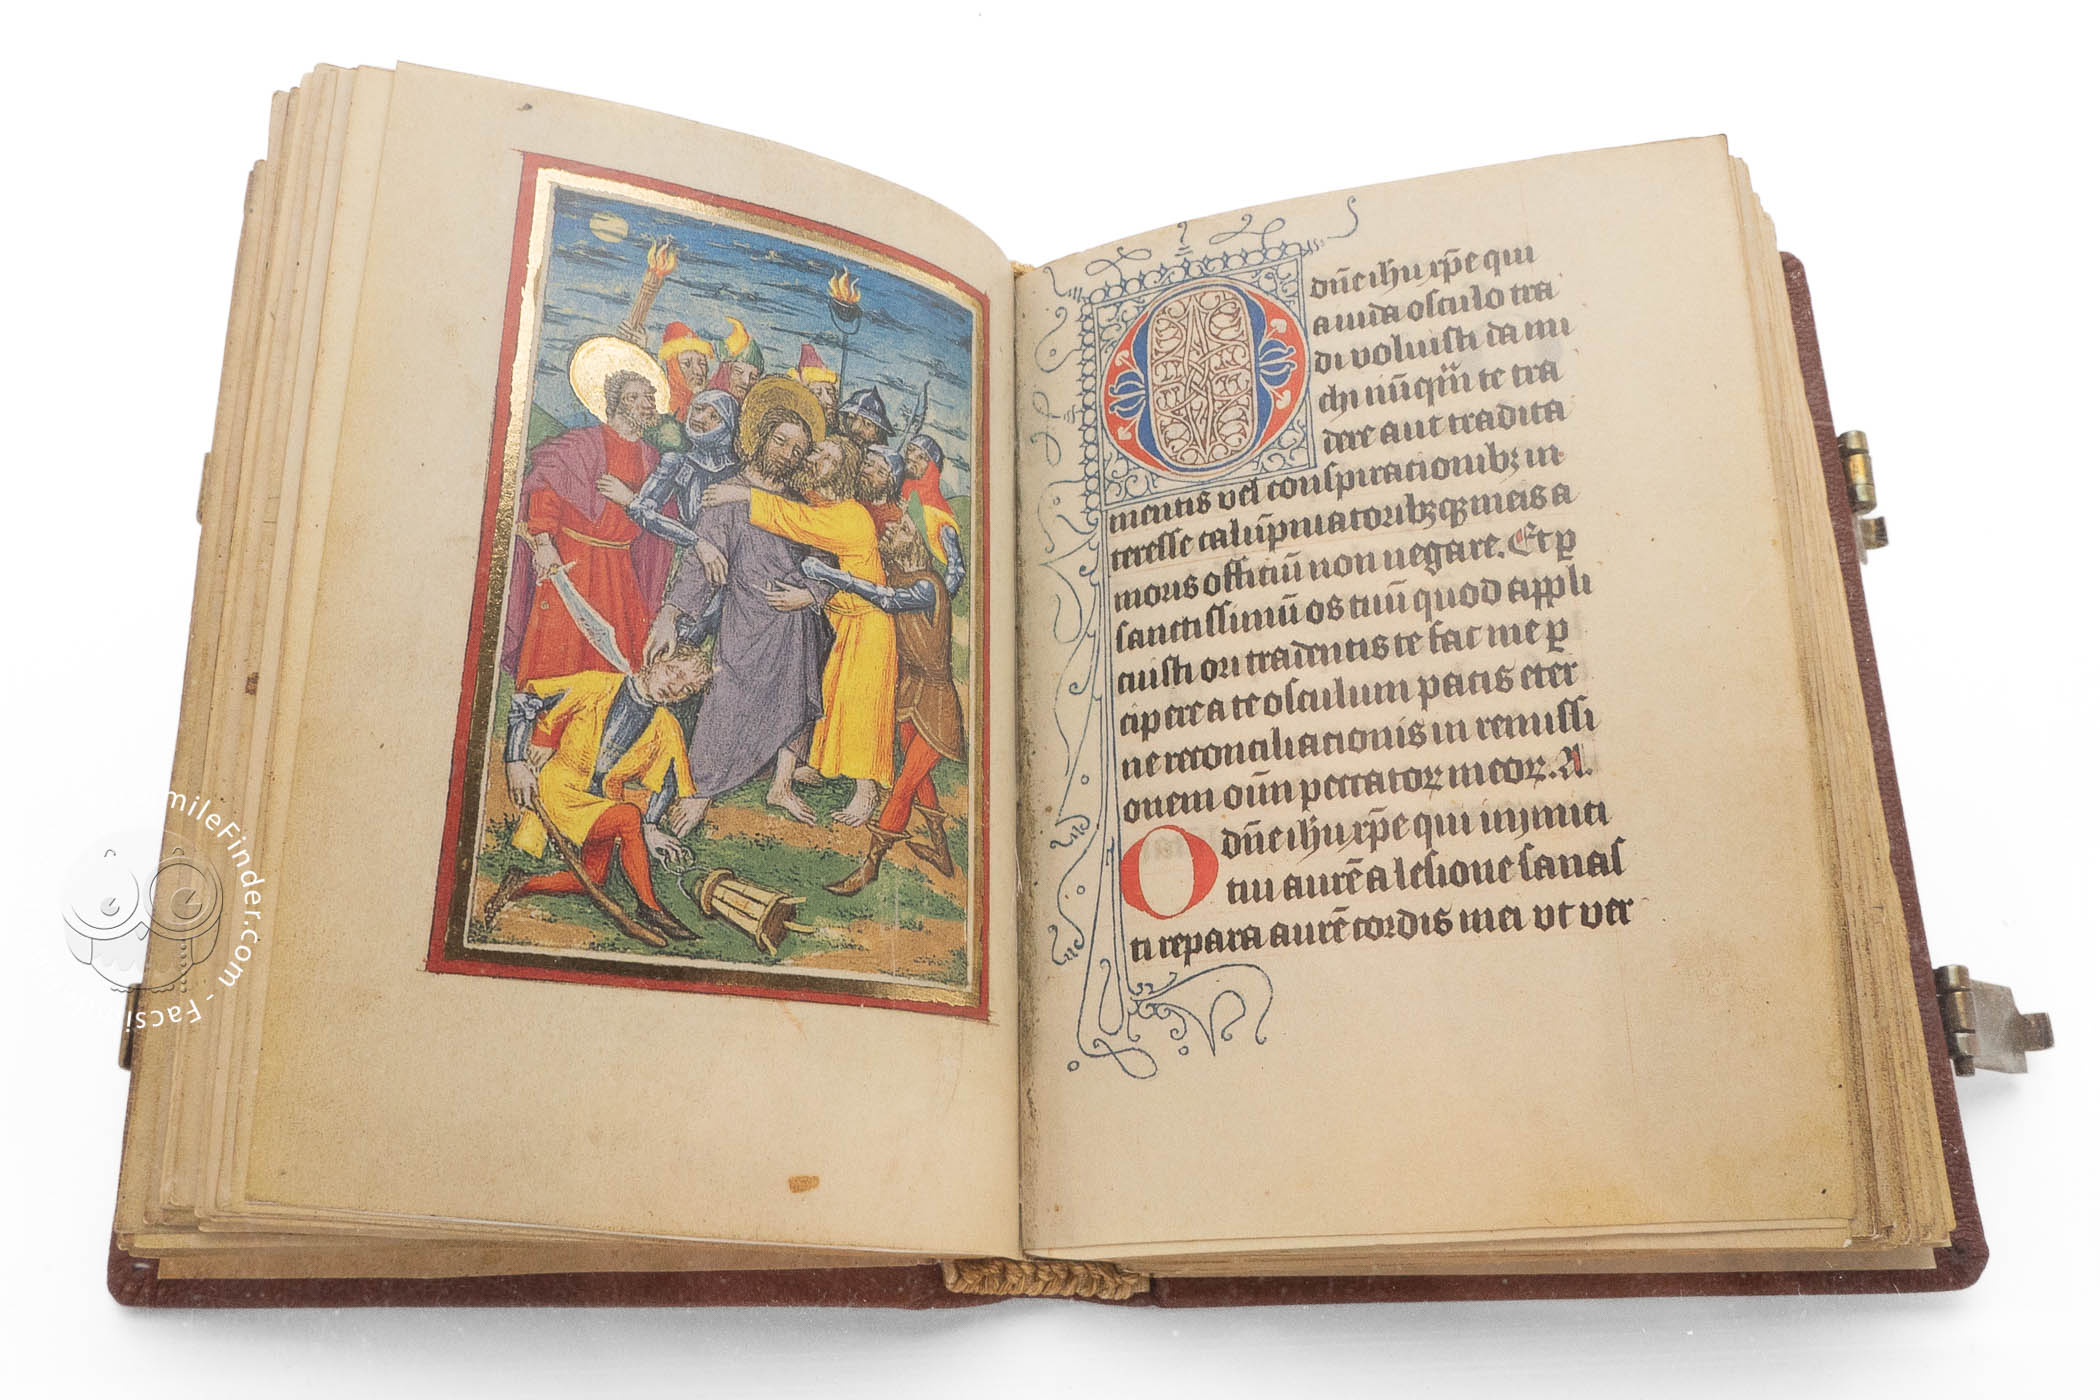 O dn̄e ihu xp̄e qui
a iuda osculo tra
di voluisti da mi
chi nūq̄ȝ te tra
dere aut tradita
mentis vel conspirationibȝ in
teresse calūpniatoribȝqȝ meis a
moris officiū non negare. Et p̱
sanctissimū os tuū quod appli
cuisti ori tradentis te fac me p̱
cipere a te osculum pacis eter
ne reconciliationis in remissi
onem oīm peccatoꝝ meoꝝ. A.
O dn̄e ihu xp̄e qui inimici
tui aurē a lesione sanas
ti repara aurē cordis mei vt ver
FacsimileFinder.com - Facsi